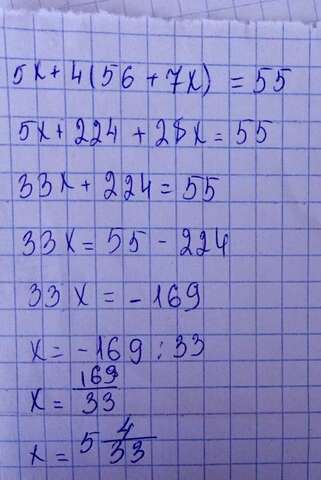 5x + 4(56 + 7x) = 55
5x + 224 + 28x = 55
33x + 224 = 55
33x = 55 - 224
33x = - 169
x = - 169 : 33
x = 169/33
x = 5 4/33